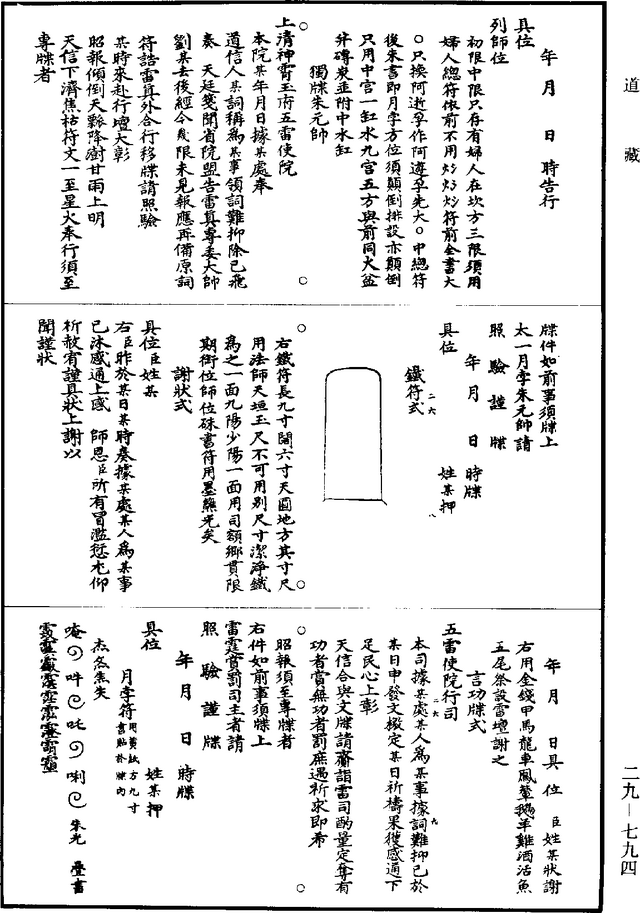 道藏
年　月　日　時告行
具位
列師位
初限中限只存有婦人在坎方三限須用
婦人總符依前不用炒炒炒符前全書大
○只挨阿遊孚作阿遵孚先大○中總符
後朱書即月孛方位須顛倒排設亦顛倒
只用中宮一缸水九宮五方與前同大盆
并磚炭並附中水缸
獨牒朱元帥
上清神霄玉府五雷使院
本院某年月日據某處奉
道信人某詞稱為某事領詞難抑除已飛
奏　天廷箋聞省院盟告雷真專委大帥
劉某去後經今幾限未見報應再備原詞
符誥雷真外合行移牒請照驗
某時來赴行壇大彰
昭報傾倒天瓢降澍甘雨上明
天信下濟焦枯符文一至星火奉行須至
專牒者
牒件如前事須牒上
太一月孛朱元帥請
照驗謹牒
年　月　日　時牒
具位　姓某押
鐵符式
右鐵符長九寸闊六寸天圓地方其寸尺
用法師天垣玉尺不可用別尺寸潔淨鐵
為之一面九陽少陽一面用司額鄉貫限
期銜位師位硃書符用墨蘸光矣
謝狀式
具位臣姓某
右臣昨於某日某時奏據某處某人為某事
已沐感通上感　師恩臣所有冒濫愆尤仰
祈赦宥謹具狀上謝以
聞謹狀
年　月　日具位　臣姓某狀謝
右用金錢甲馬龍車鳳輦鵝羊雞酒活魚
五尾祭設雷壇謝之
言功牒式
五雷使院行司
本司據某處某人為某事據詞難抑已於
某日申發文檄定某日祈禱果獲感通下
足民心上彰
天信合與文牒請齋詣雷司酌量定奪有
功者賞無功者罰庶遇祈求即希
昭報須至專牒者
右件如前事須牒上
雷霆賞罰司主者請
照驗謹牒
年　月　日　時牒
具位　姓某押
月孛符 用黃紙方九寸書貼於牒內
唵 吽 吒 唎 朱光
二九—七九四